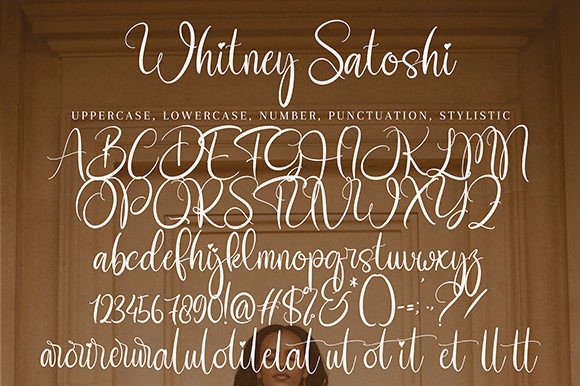 Whitney Satoshi
UPPERCASE, LOWERCASE, NUMBER, PUNCTUATION, STYLISTIC
ABCDEFGHIJKLMN
OPQRSTUVWXYZ
abcdefghijklmnopqrstuvwxyz
1234567890!@#$%&*()-=;:,?//
ar or ir er ur al ul ol il el at ut ot it et ll tt